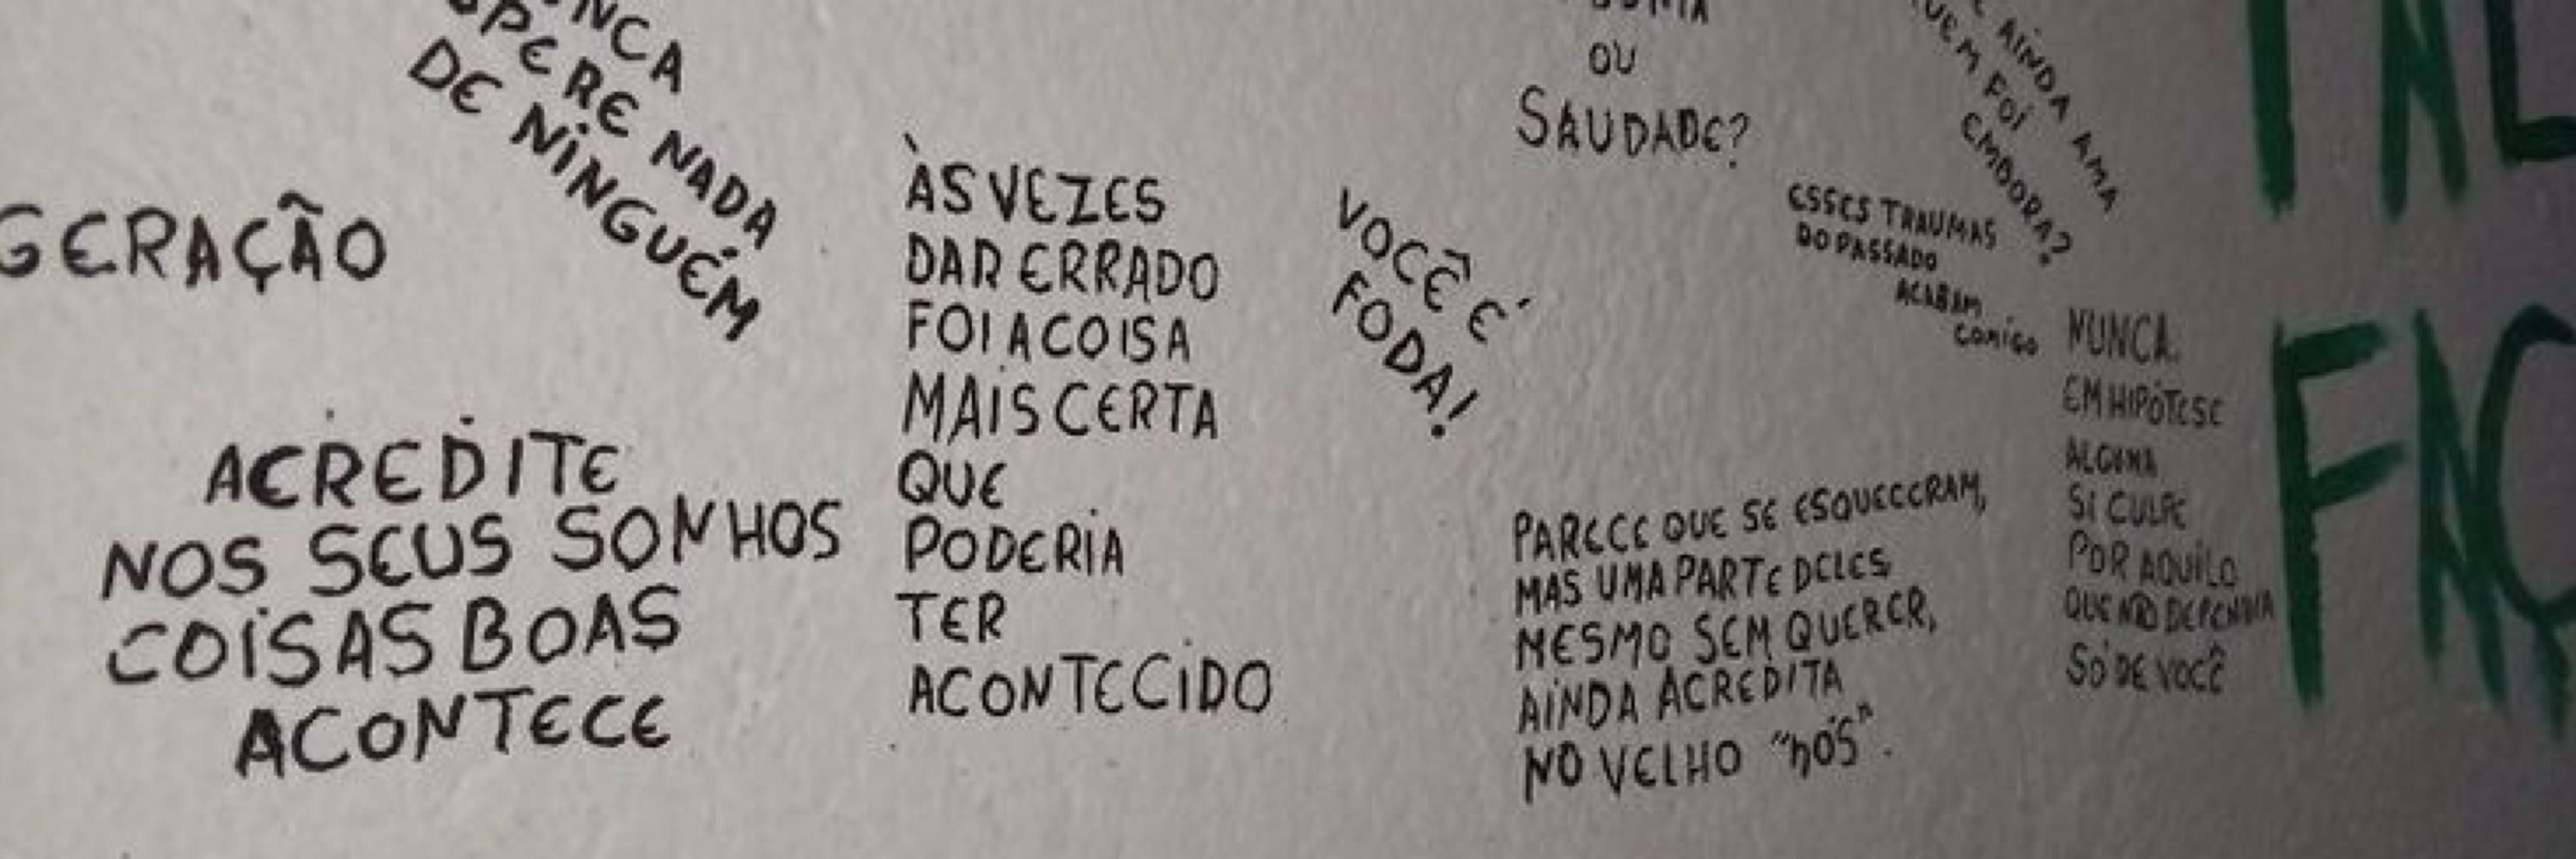 GERAÇÃO
PERE NADA
DE NINGUÉM
ACREDITE
NOS SEUS SONHOS
COISAS BOAS
ACONTECE
ÀS VEZES
DAR ERRADO
FOI A COISA
MAIS CERTA
QUE
PODERIA
TER
ACONTECIDO
VOCÊ É
FODA!
OU
SAUDADE?
AINDA AMA
QUEM FOI
EMBORA?
ESSES TRAUMAS
DO PASSADO
ACABAM
COMIGO
PARECE QUE SE ESQUECERAM,
MAS UMA PARTE DELES
MESMO SEM QUERER,
AINDA ACREDITA
NO VELHO "NÓS".
NUNCA.
EM HIPÓTESE
ALGUMA
SI CULPE
POR AQUILO
QUE NÃO DEPENDIA
SÓ DE VOCÊ